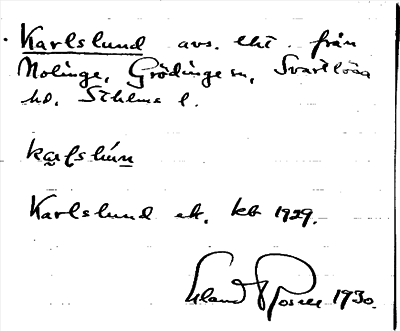 Karlslund avs. lht. från
Nolinge, Grödinge sn, Svartlösa
hd. Sthlms l.
Karlslund ek. kb 1929.
Erland Rosell 1930.